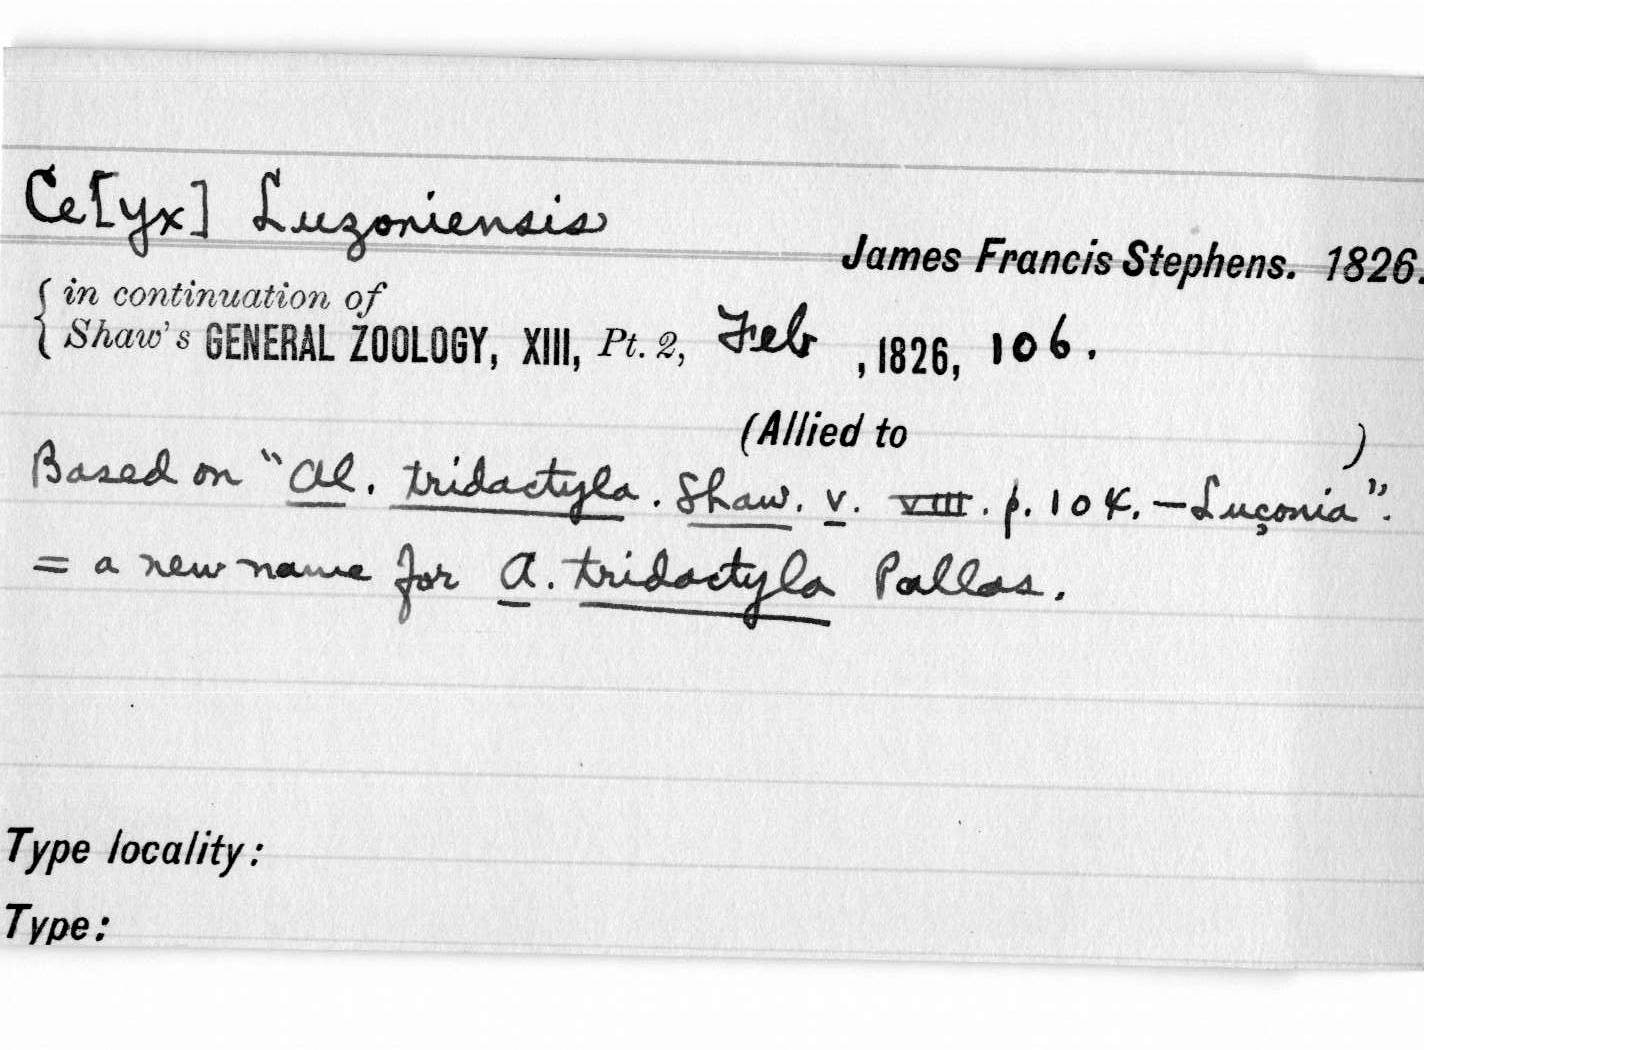 Ce[yx] Luzoniensis
James Francis Stephens. 1826.
in continuation of
Shaw's GENERAL ZOOLOGY, XIII, Pt. 2, Feb , 1826, 106.
(Allied to )
Based on "Al. tridactyla. Shaw. v. VIII. p. 104. – Luçonia".
= a new name for A. tridactyla Pallas.
Type locality:
Type: